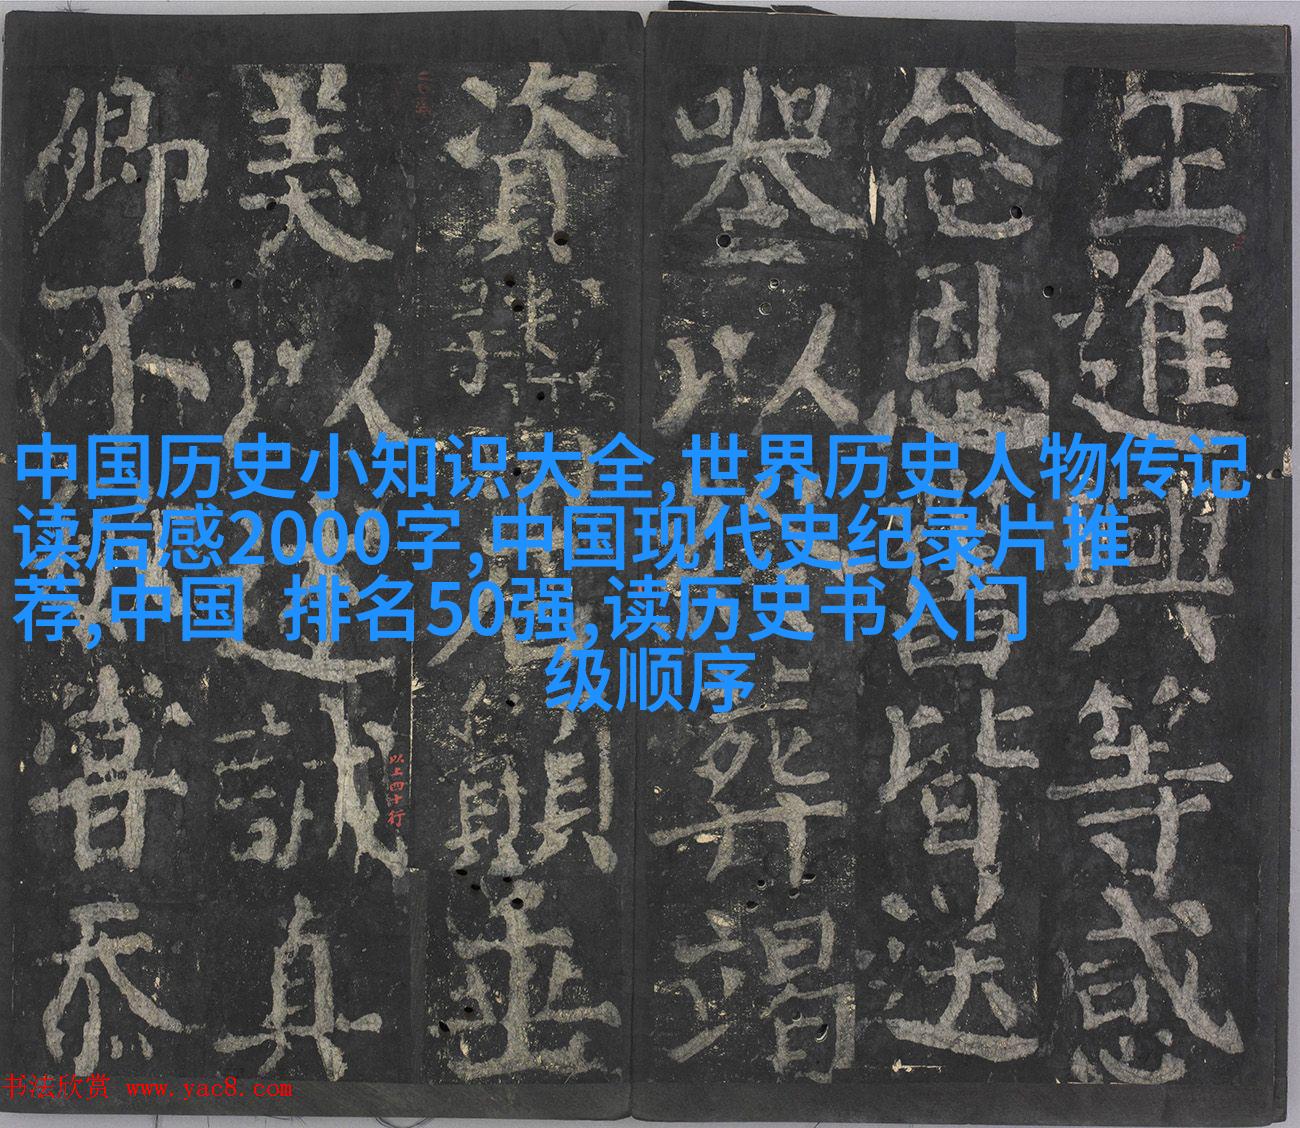 中国历史小知识大全,世界历史人物传记
读后感2000字,中国现代史纪录片推
荐,中国 排名50强,读历史书入门
级顺序
王進興等感
念恩舊皆送
以人葬竭
資並
美以人述誠真
卿不昔忝
以上四十行
书法欣赏 www.yac8.com